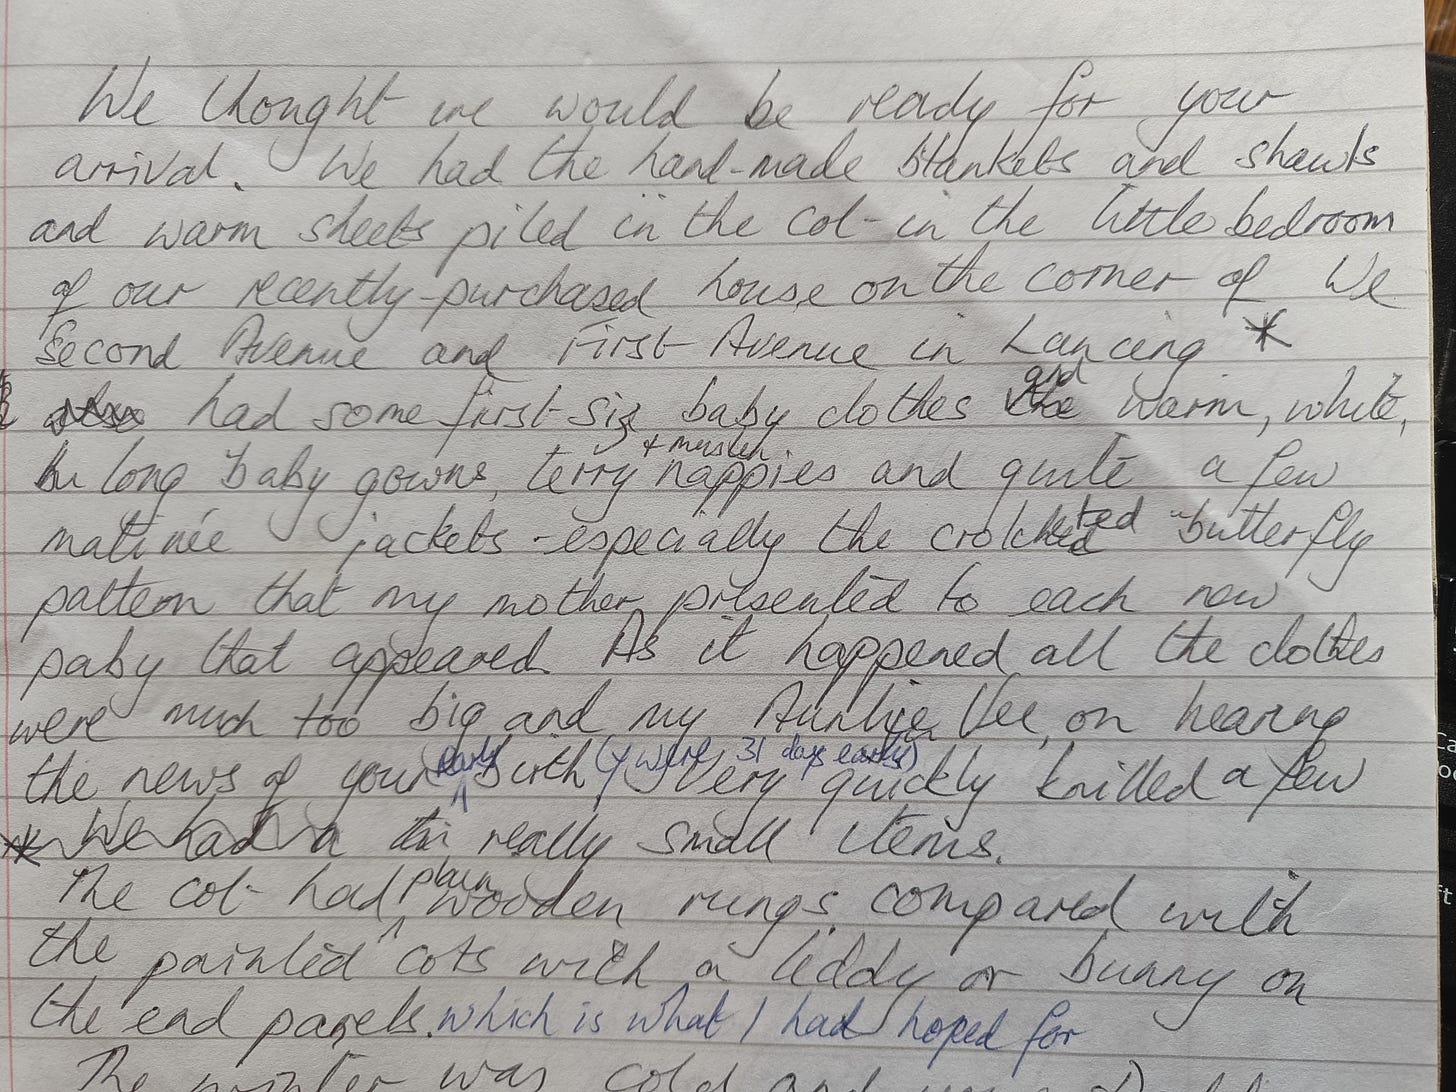 We thought we would be ready for your
arrival. We had the hand-made blankets and shawls
and warm sheets piled in the cot in the little bedroom
of our recently-purchased house on the corner of We
Second Avenue and First Avenue in Lancing *
had some first size baby clothes and warm, white,
long baby gowns, terry + muslin nappies and quite a few
matinée jackets - especially the crotcheted butterfly
pattern that my mother presented to each new
baby that appeared. As it happened all the clothes
were much too big and my Auntie Vee, on hearing
the news of your early birth (y were 31 days early) very quickly knitted a few
* We had a really small items.
The cot had plain wooden rungs compared with
the painted cots with a teddy or bunny on
the end panels. which is what I had hoped for
The winter was cold and